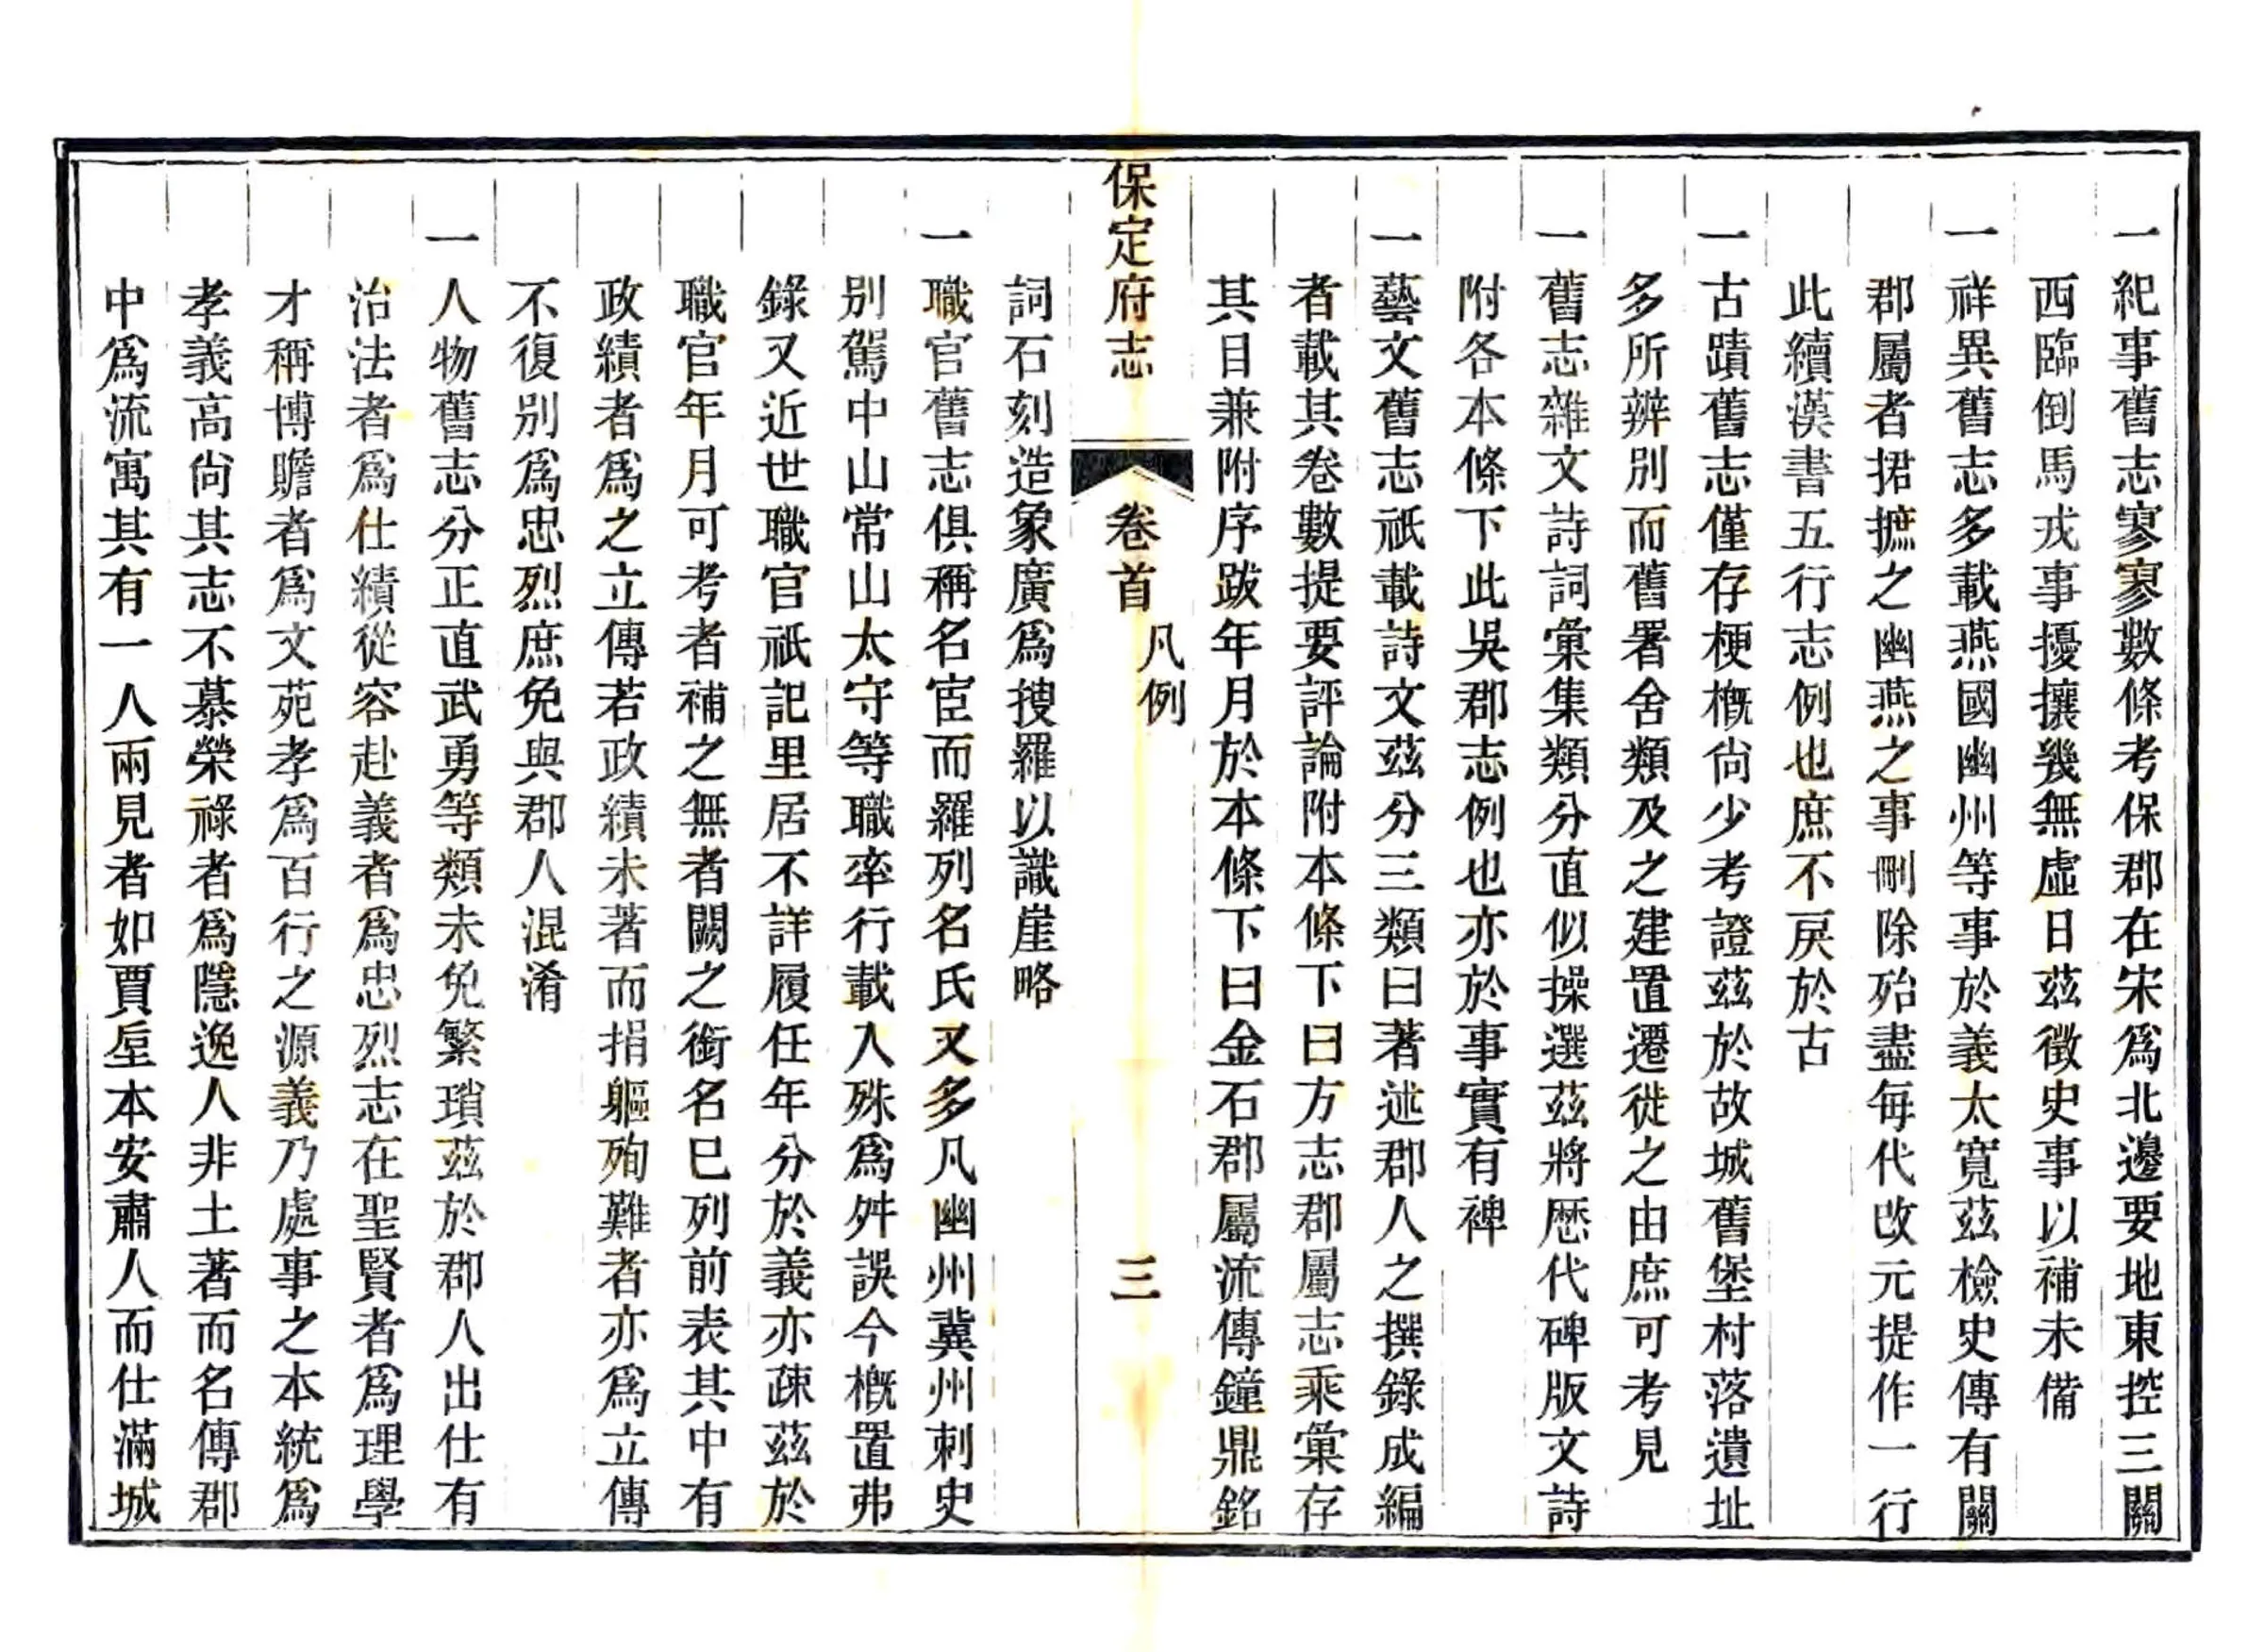 一紀事舊志寥寥數條考保郡在宋爲北邊要地東控三關
西臨倒馬戎事擾攘幾無虛日茲徵史事以補未備
一祥異舊志多載燕國幽州等事於義太寬茲檢史傳有關
郡屬者捃摭之幽燕之事刪除殆盡每代改元提作一行
此續漢書五行志例也庶不戾於古
一古蹟舊志僅存梗概尙少考證茲於故城舊堡村落遺址
多所辨別而舊署舍類及之建置遷徙之由庶可考見
一舊志雜文詩詞彙集類分直似操選茲將歷代碑版文詩
附各本條下此吳郡志例也亦於事實有裨
一藝文舊志祇載詩文茲分三類曰著述郡人之撰錄成編
者載其卷數提要評論附本條下曰方志郡屬志乘彙存
其目兼附序跋年月於本條下曰金石郡屬流傳鐘鼎銘
保定府志 卷首 凡例 三
詞石刻造象廣爲搜羅以識崖略
一職官舊志俱稱名宦而羅列名氏又多凡幽州冀州刺史
別駕中山常山太守等職率行載入殊爲舛誤今概置弗
錄又近世職官祇記里居不詳履任年分於義亦疎茲於
職官年月可考者補之無者闕之銜名已列前表其中有
政績者爲之立傳若政績未著而捐軀殉難者亦爲立傳
不復別爲忠烈庶免與郡人混淆
一人物舊志分正直武勇等類未免繁瑣茲於郡人出仕有
治法者爲仕績從容赴義者爲忠烈志在聖賢者爲理學
才稱博贍者爲文苑孝爲百行之源義乃處事之本統爲
孝義高尙其志不慕榮祿者爲隱逸人非土著而名傳郡
中爲流寓其有一人兩見者如賈垕本安肅人而仕滿城